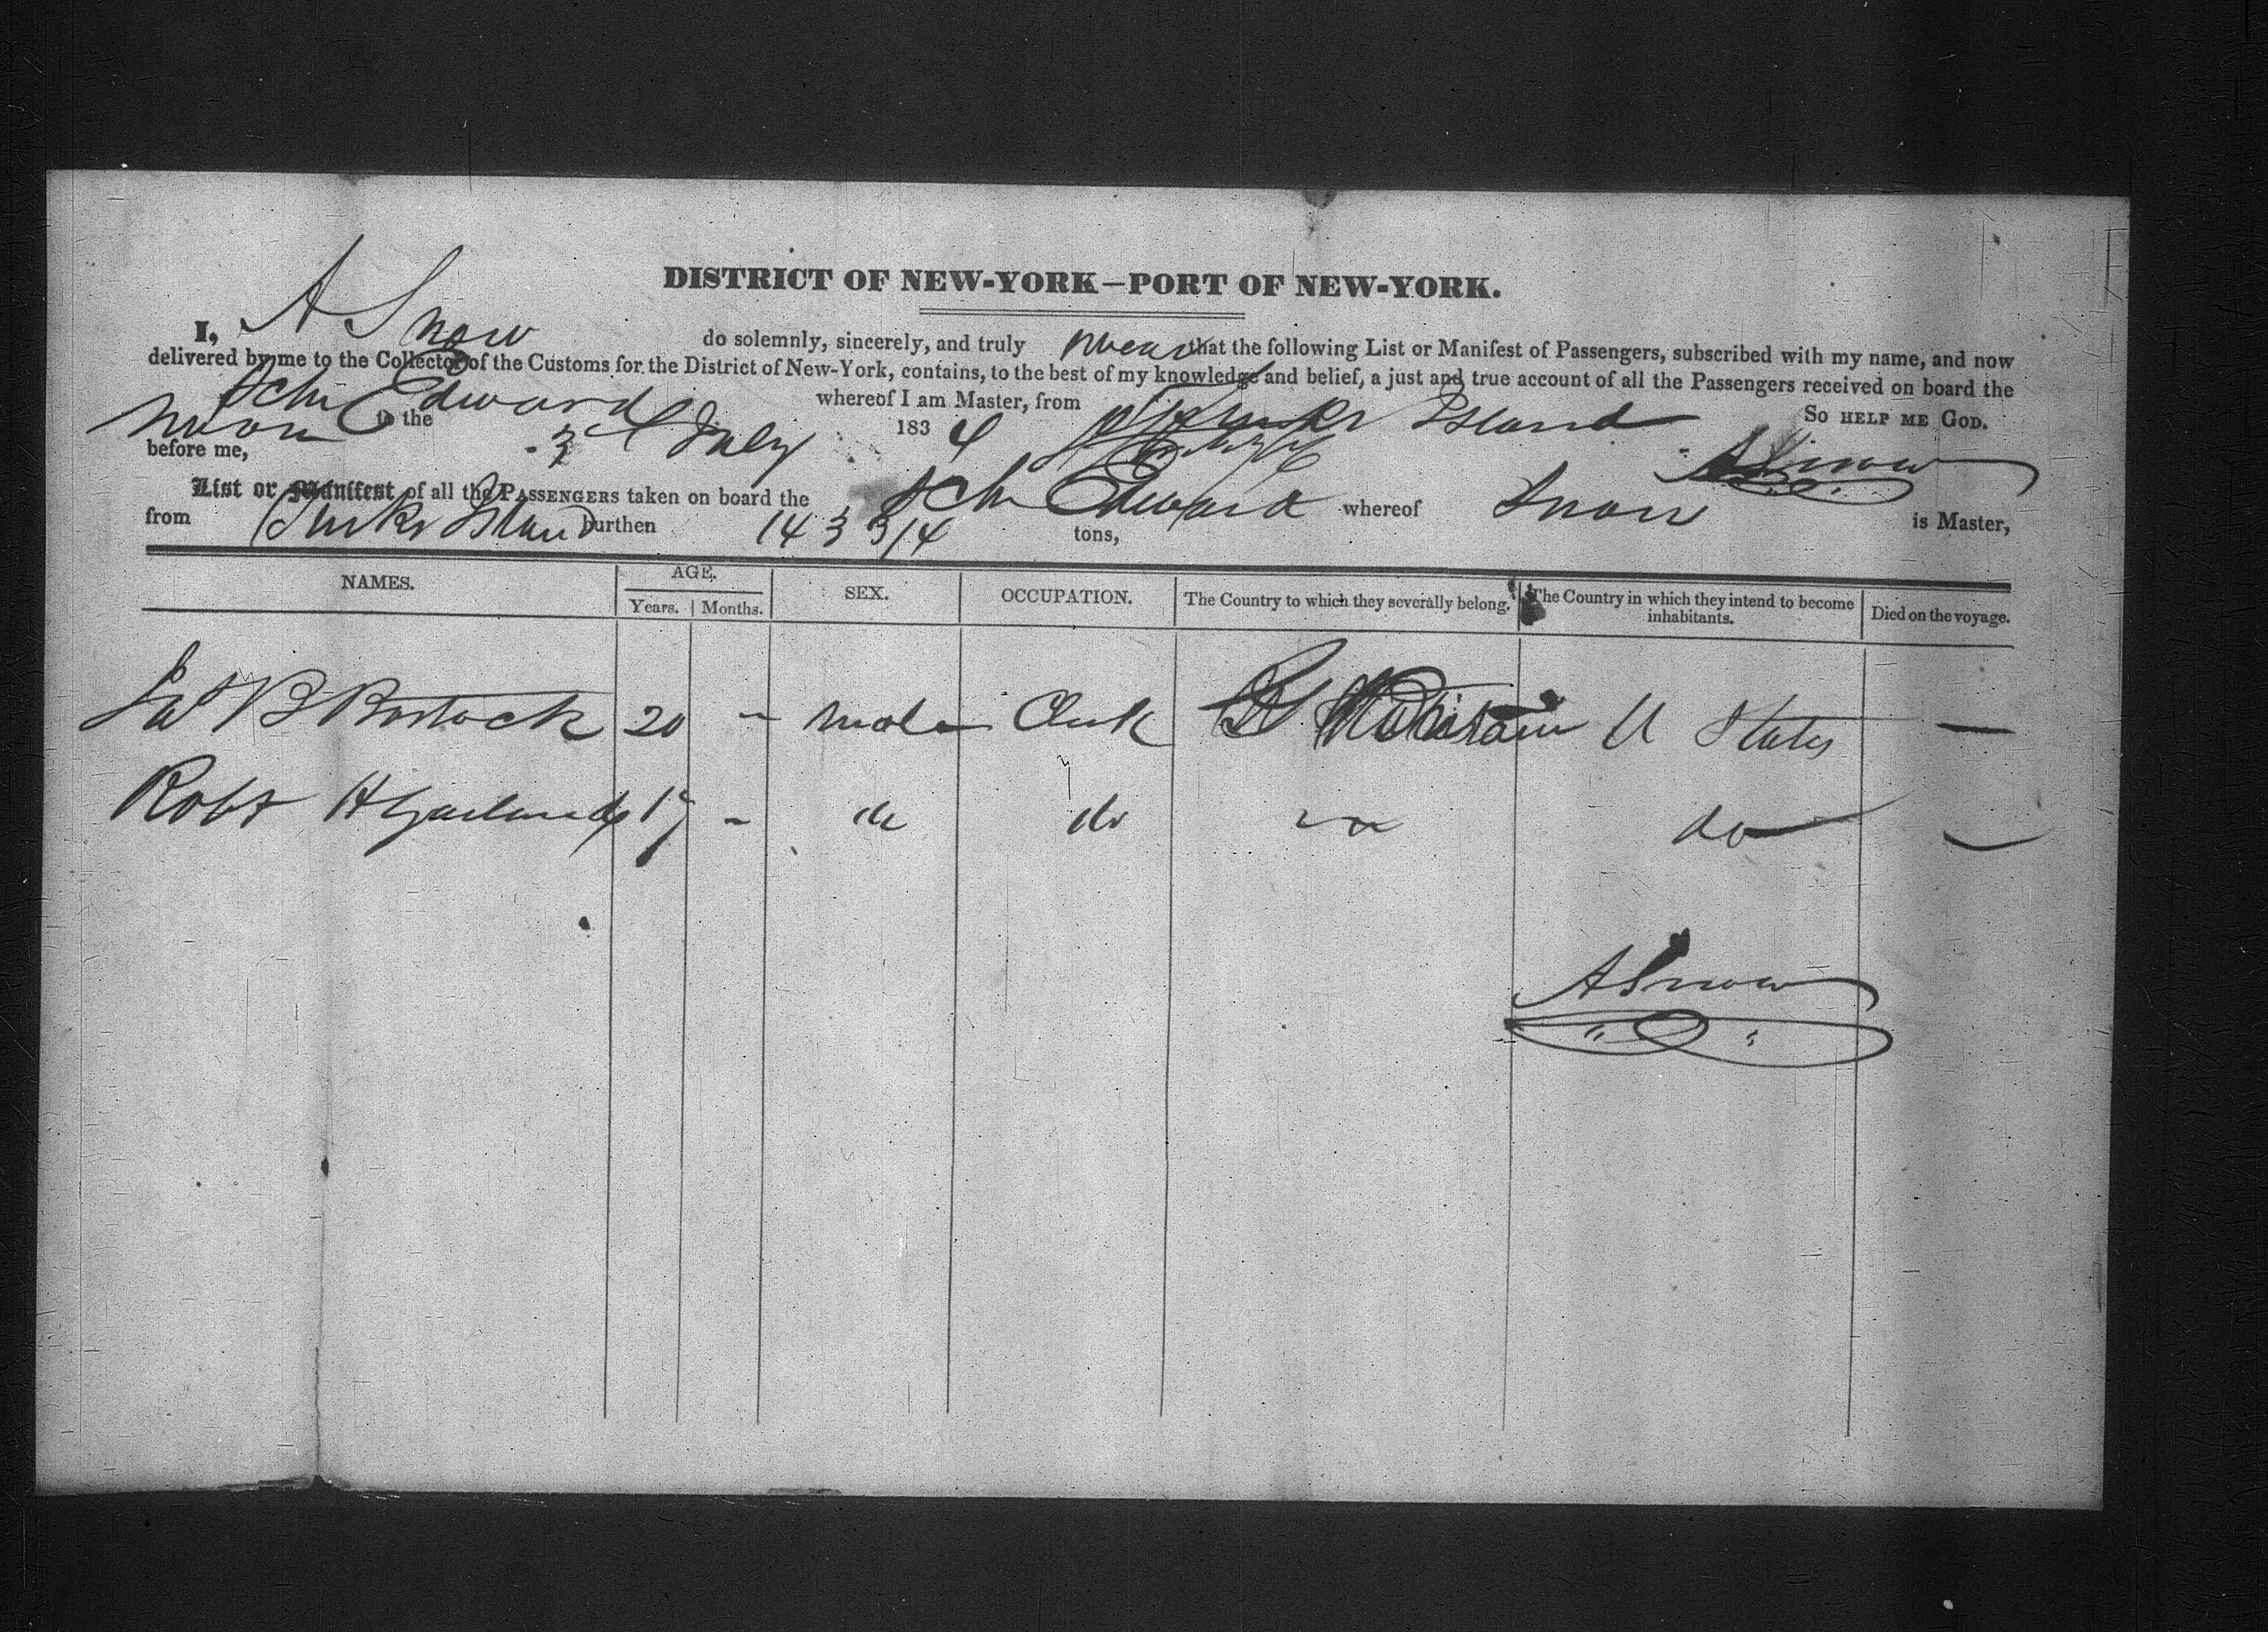 DISTRICT OF NEW-YORK—PORT OF NEW-YORK.
I, A Snow do solemnly, sincerely, and truly swear that the following List or Manifest of Passengers, subscribed with my name, and now
delivered by me to the Collector of the Customs for the District of New-York, contains, to the best of my knowledge and belief, a just and true account of all the Passengers received on board the
Sch Edward whereof I am Master, from Turks Island
So HELP ME GOD.
Sworn to the 3d July 1834
before me,
A Snow
List or Manifest of all the PASSENGERS taken on board the Sch Edward whereof Snow is Master,
from Turks Island burthen 143 3/4 tons,
NAMES. AGE. SEX. OCCUPATION. The Country to which they severally belong. The Country in which they intend to become inhabitants. Died on the voyage.
Years. Months.
B Bostock 20 - male Clerk Britain U States —
Robt H 17 - do do do —
A Snow